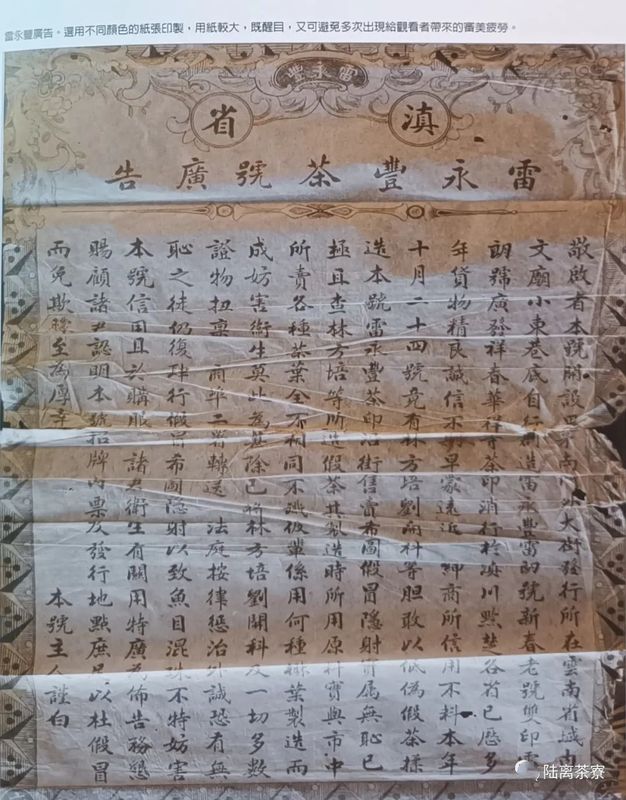 雷永豐廣告。選用不同顏色的紙張印製，用紙較大，既醒目，又可避免多次出現給觀看者帶來的審美疲勞。
雷永豐
滇省
雷永豐茶號廣告
敬啟者本號開設思茅南門外大街發行所在雲南省城內
文廟小東巷底自行新造雷永豐雷的號新春老號雙印雷
朗號廣發祥春華祥等茶印消行於滇川黔楚各省已歷多
年貨物精良誠信不欺早蒙遠近紳商所信用不料本年
十月二十四號竟有林方培劉開科等胆敢以低偽假茶揉
造本號雷永豐茶印沿街售賣希圖假冒隱射實属無恥已
極且查林方培等所造假茶其製造時所用原料實與市中
所賣各種茶葉全不相同不識彼輩係用何種葉製造而
成妨害衛生莫此為甚除已將林方培劉開科及一切多數
證物扭稟商 轉送法庭按律懲治外誠恐有無
恥之徒仍復肆行假冒希圖隱射以致魚目混珠不特妨害
本號信用且於購服諸君衛生有關用特廣為佈告務懇
賜顧諸君認明本號招牌內票及發行地點庶足以杜假冒
而免欺矇至為厚幸
本號主人謹白
陆离茶寮